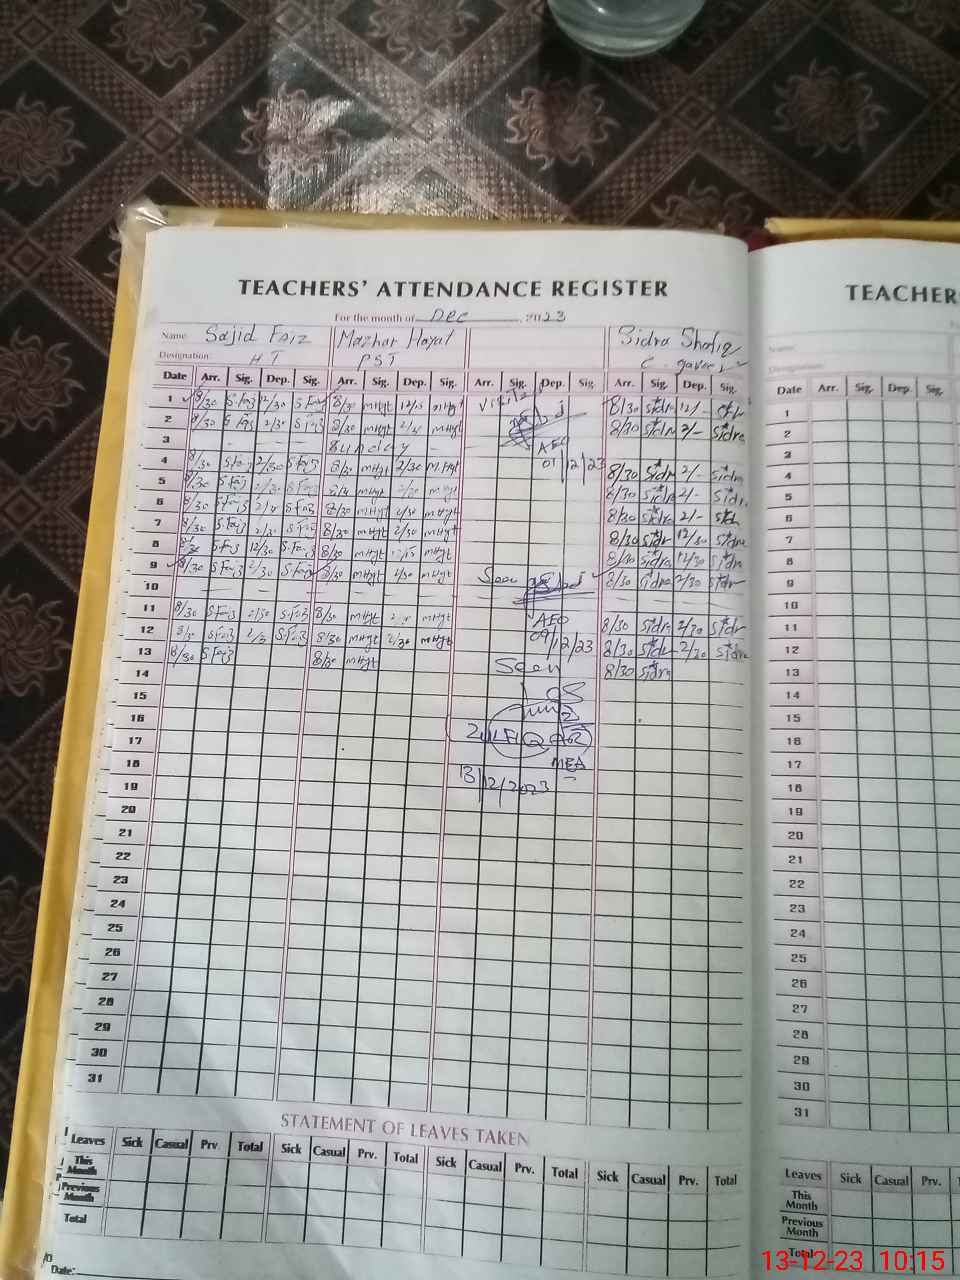 TEACHERS' ATTENDANCE REGISTER
For the month of Dec 2023
Name: Sajid Faiz Mazhar Hayat Sidra Shafiq
Designation: HT PST C. gaver
Date Arr. Sig. Dep. Sig. Arr. Sig. Dep. Sig. Arr. Sig. Dep. Sig. Arr. Sig. Dep. Sig.
1 8/30 S.Faiz 12/30 S.Faiz 8/30 mHyt 12/15 mHyt Visited 8/30 Sidra 12/-
2 8/30 2/30 8/30 mHyt mHyt 8/30 Sidra 2/- Sidra
3 Sunday AEO
4 8/30 S.Faiz 2/30 S.Faiz 8/30 mHyt 2/30 m.Hyt 01/12/23 8/30 Sidra 2/- Sidra
5 8/30 S.Faiz 2/30 S.Faiz mHyt 2/30 mHyt 8/30 Sidra 2/- Sidra
6 8/30 S.Faiz S.Faiz 8/30 mHyt 2/30 mHyt 8/30 Sidra 2/-
7 8/30 S.Faiz 2/30 S.Faiz 8/30 mHyt 2/30 mHyt 8/30 12/30 Sidra
8 S.Faiz 12/30 S.Faiz 8/30 mHyt mHyt 8/30 Sidra 12/30 Sidra
9 8/30 S.Faiz 2/30 S.Faiz 8/30 mHyt 2/30 mHyt Seen 8/30 Sidra 2/30 Sidra
10
11 8/30 S.Faiz 2/30 S.Faiz 8/30 mHyt mHyt AEO 8/30 Sidra 2/30 Sidra
12 8/30 S.Faiz S.Faiz 8/30 mHyt 2/30 mHyt 09/12/23 8/30 Sidra 2/30 Sidra
13 8/30 S.Faiz 8/30 mHyt Seen 8/30 Sidra
14
15
16
17 ZULFIQAR
18 MEA
19 13/12/2023
20
21
22
23
24
25
26
27
28
29
30
31
STATEMENT OF LEAVES TAKEN
Leaves Sick Casual Prv. Total Sick Casual Prv. Total Sick Casual Prv. Total Sick Casual Prv. Total
This Month
Previous Month
Total
Date:
TEACHER
Name:
Designation:
Date Arr. Sig. Dep. Sig.
1
2
3
4
5
6
7
8
9
10
11
12
13
14
15
16
17
18
19
20
21
22
23
24
25
26
27
28
29
30
31
Leaves Sick Casual Prv.
This Month
Previous Month
Total
13-12-23 10:15